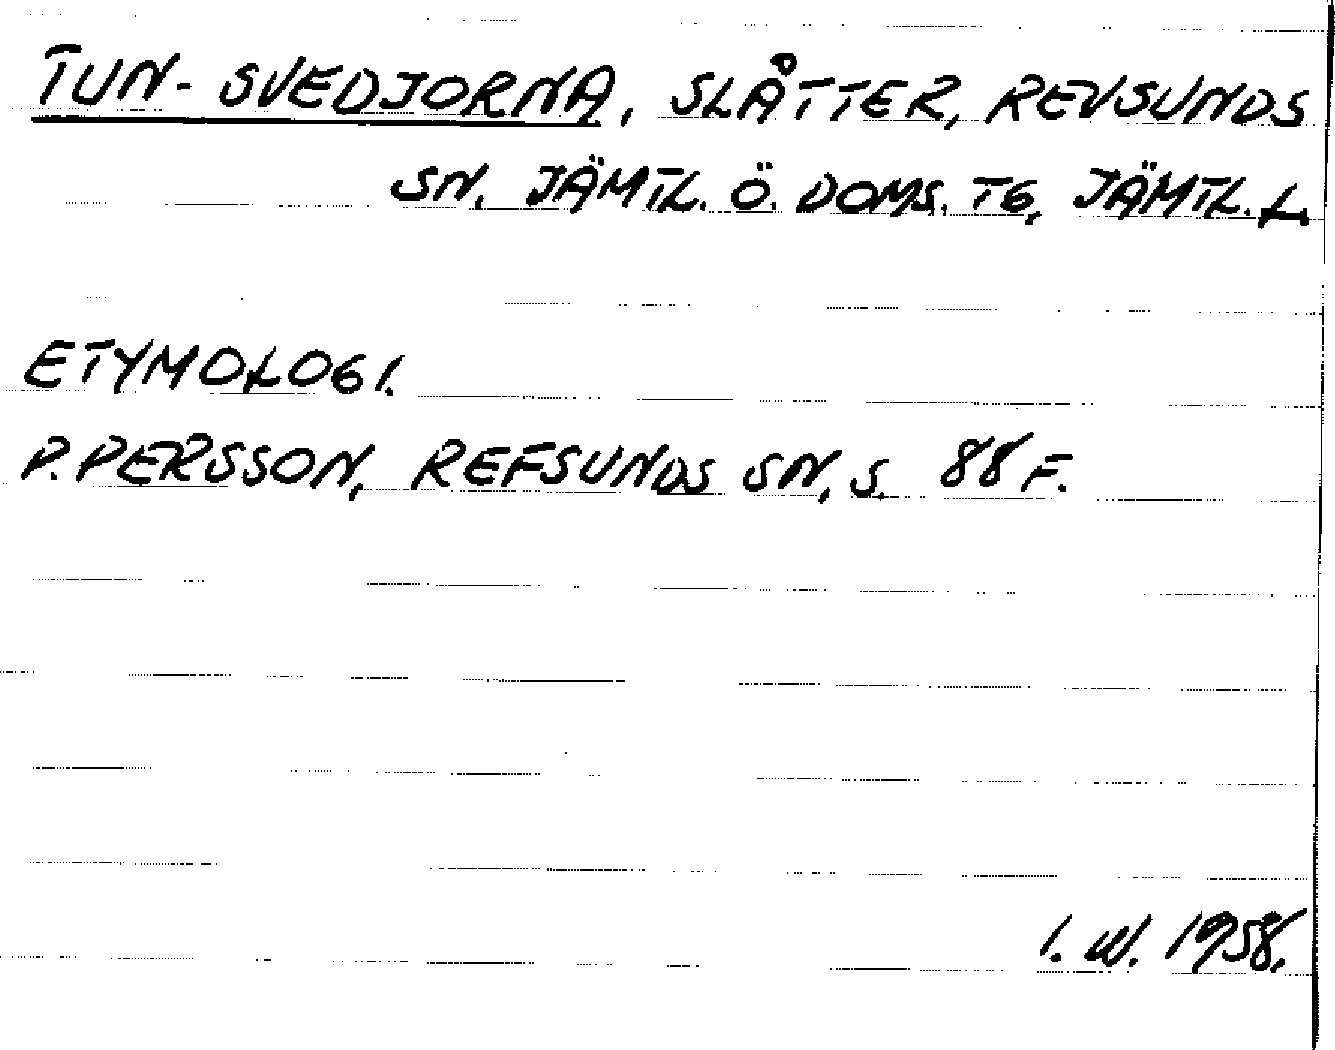 TUN-SVEDJORNA, SLÅTTER, REVSUNDS
SN. JÄMTL. Ö. DOMS. TG, JÄMTL. L.
ETYMOLOGI.
P. PERSSON, REFSUNDS SN, S. 88 F.
I. W. 1958.